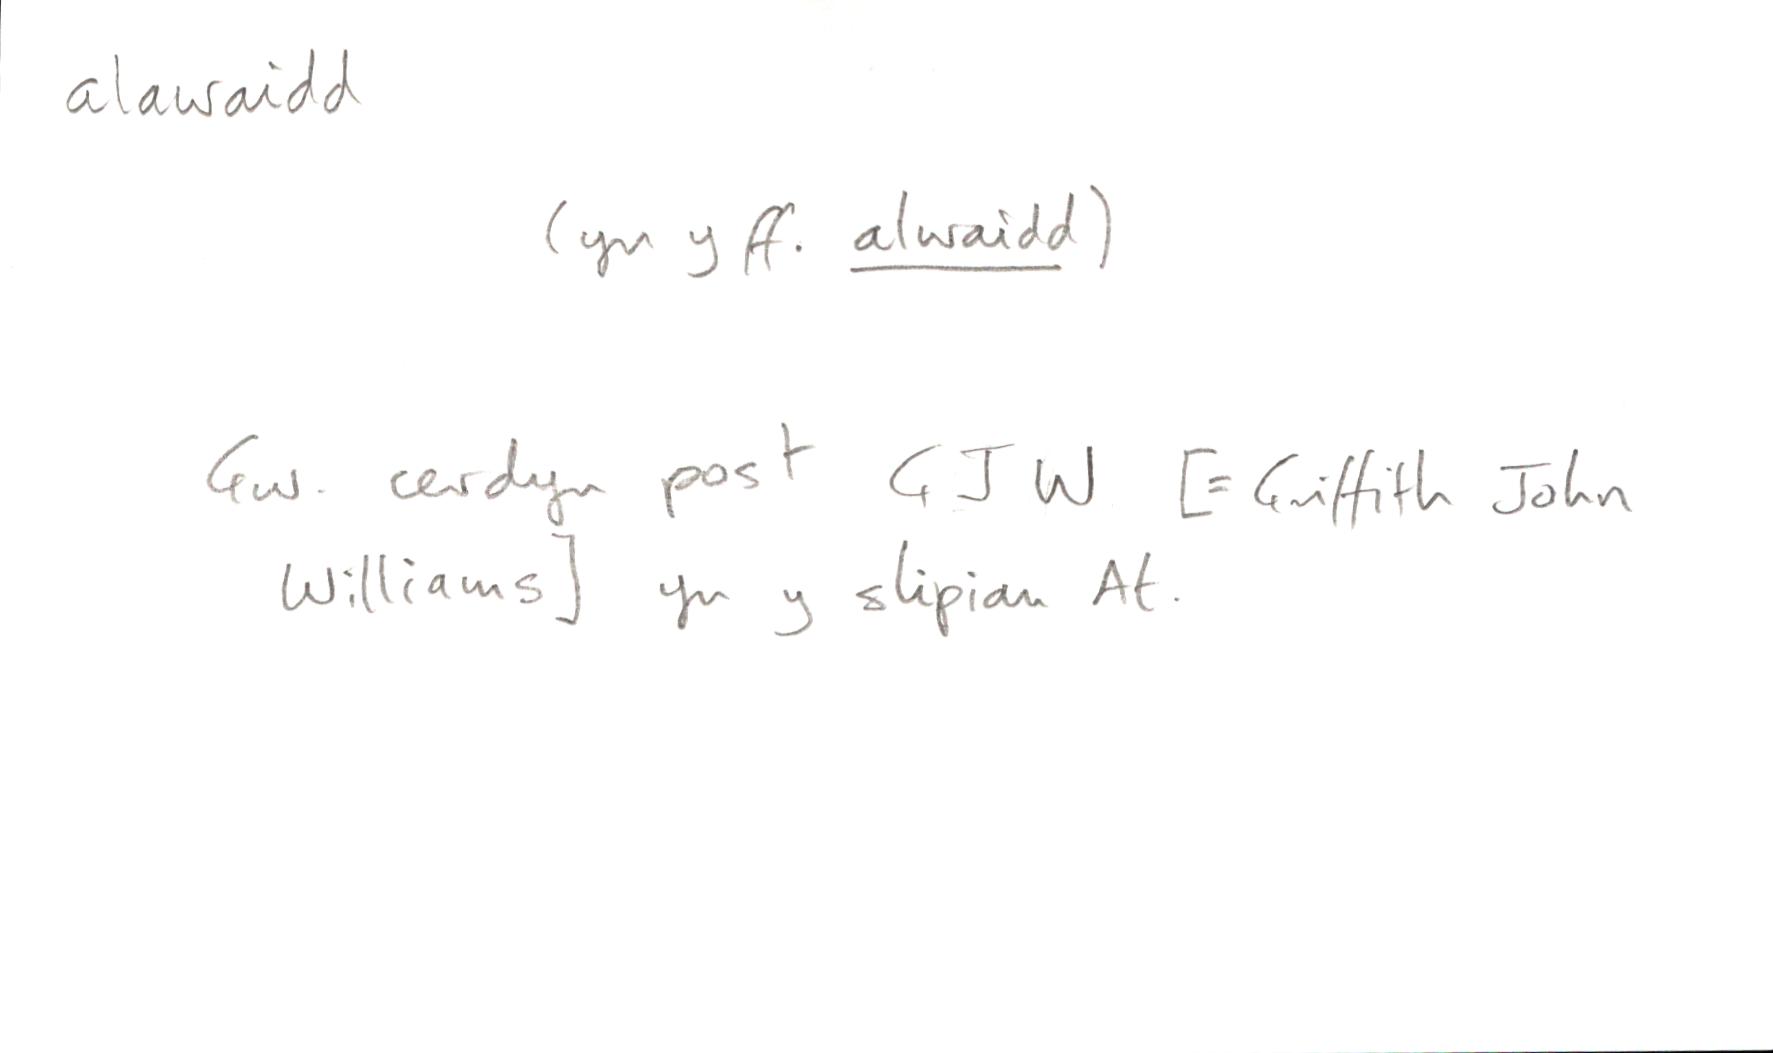 alawaidd
(yn y ff. alwaidd)
Gw. cerdyn post GJW [= Griffith John
Williams] yn y slipian At.